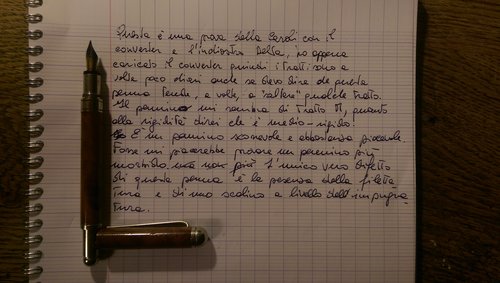 Questa è una prova della Caroli con il
converter e l'inchiostro Delta, ho appena
caricato il converter quindi i tratti sono a
volte poco chiari anche se devo dire che questa
penna tende, a volte, a "saltare" qualche tratto.
Il pennino mi sembra di tratto M, quanto
alla rigidità direi che è medio-rigido!
È un pennino scorrevole e abbastanza piacevole.
Forse mi piacerebbe provare un pennino più
morbido, ma non più L'unico vero difetto
di questa penna è la presenza della filetta
tura e di uno scalino a livello dell'impugna
tura.